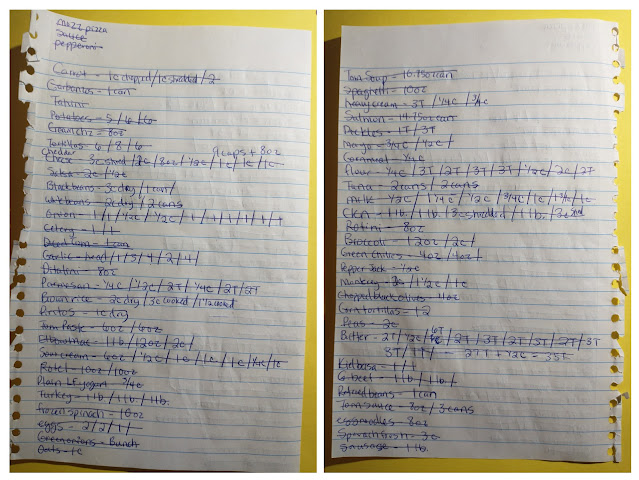 mozz pizza
sauce
pepperoni
Carrot - 1c chopped/1c shredded/2
Garbanzos - 1 can
Tahini
Potatoes - 5/6/6
Cream chz - 8oz
Tortillas - 6/8/6
9 cups + 8oz
cheddar
Cheese - 3c shred/2c/8oz/½c/1c/1c/1c
Salsa - 2c/½c
Black beans - 3c dry/1 can/
White beans - 2c dry/2 cans
Onion - 1/1/½c/½c/1/1/1/1/1/1
Celery - 1/1
Diced tom - 1 can
Garlic - head/1/5/4/2/4/
Ditalini - 8oz
Parmesan - ¼c/½c/2T/¼c/2T/2T
Brown rice - 2c dry/3c cooked/1½ cooked
Pintos - 1c dry
Tom Paste - 6oz/6oz
Elbow mac - 1lb/12oz/2c/
Sour cream - 6oz/½c/1c/1c/1c/¼c/1c
Rotel - 10oz/10oz
Plain LF yogurt - ¾c
Turkey - 1lb/1lb/1lb
frozen spinach - 10oz
eggs - 2/2/1/
Green onions - Bunch
Oats - 1c
Tom Soup - 10.75oz can
Spaghetti - 10oz
heavy cream - 3T/¼c/¾c
Salmon - 14.75oz can
Pickles - 1T/3T
Mayo - ¾c/½c/
Cornmeal - ½c
flour - ¼c/3T/2T/3T/3T/½c/2c/2T
Tuna - 2 cans/2 cans
milk - ½c/1¼c/½c/¾c/1c/1¾c/1c
Ckn - 1lb/1lb/3c shredded/1lb/3c shred
Rotini - 8oz
Broccoli - 12oz/2c/
Green Chilies - 4oz/4oz/
Pepper Jack - ½c
Monterey - 3c/1½c/1c
Chopped black olives - 4oz
Corn tortillas - 12
Peas - 2c
6T
Butter - 2T/½c/2T/3T/2T/3T/2T/3T
3T/1T/ - 27T + ½c = 35T
Kielbasa - 1/1
G beef - 1lb/1lb/
Refried beans - 1 can
Tom sauce - 8oz/3 cans
egg noodles - 8oz
Spinach fresh - 3c
Sausage - 1lb